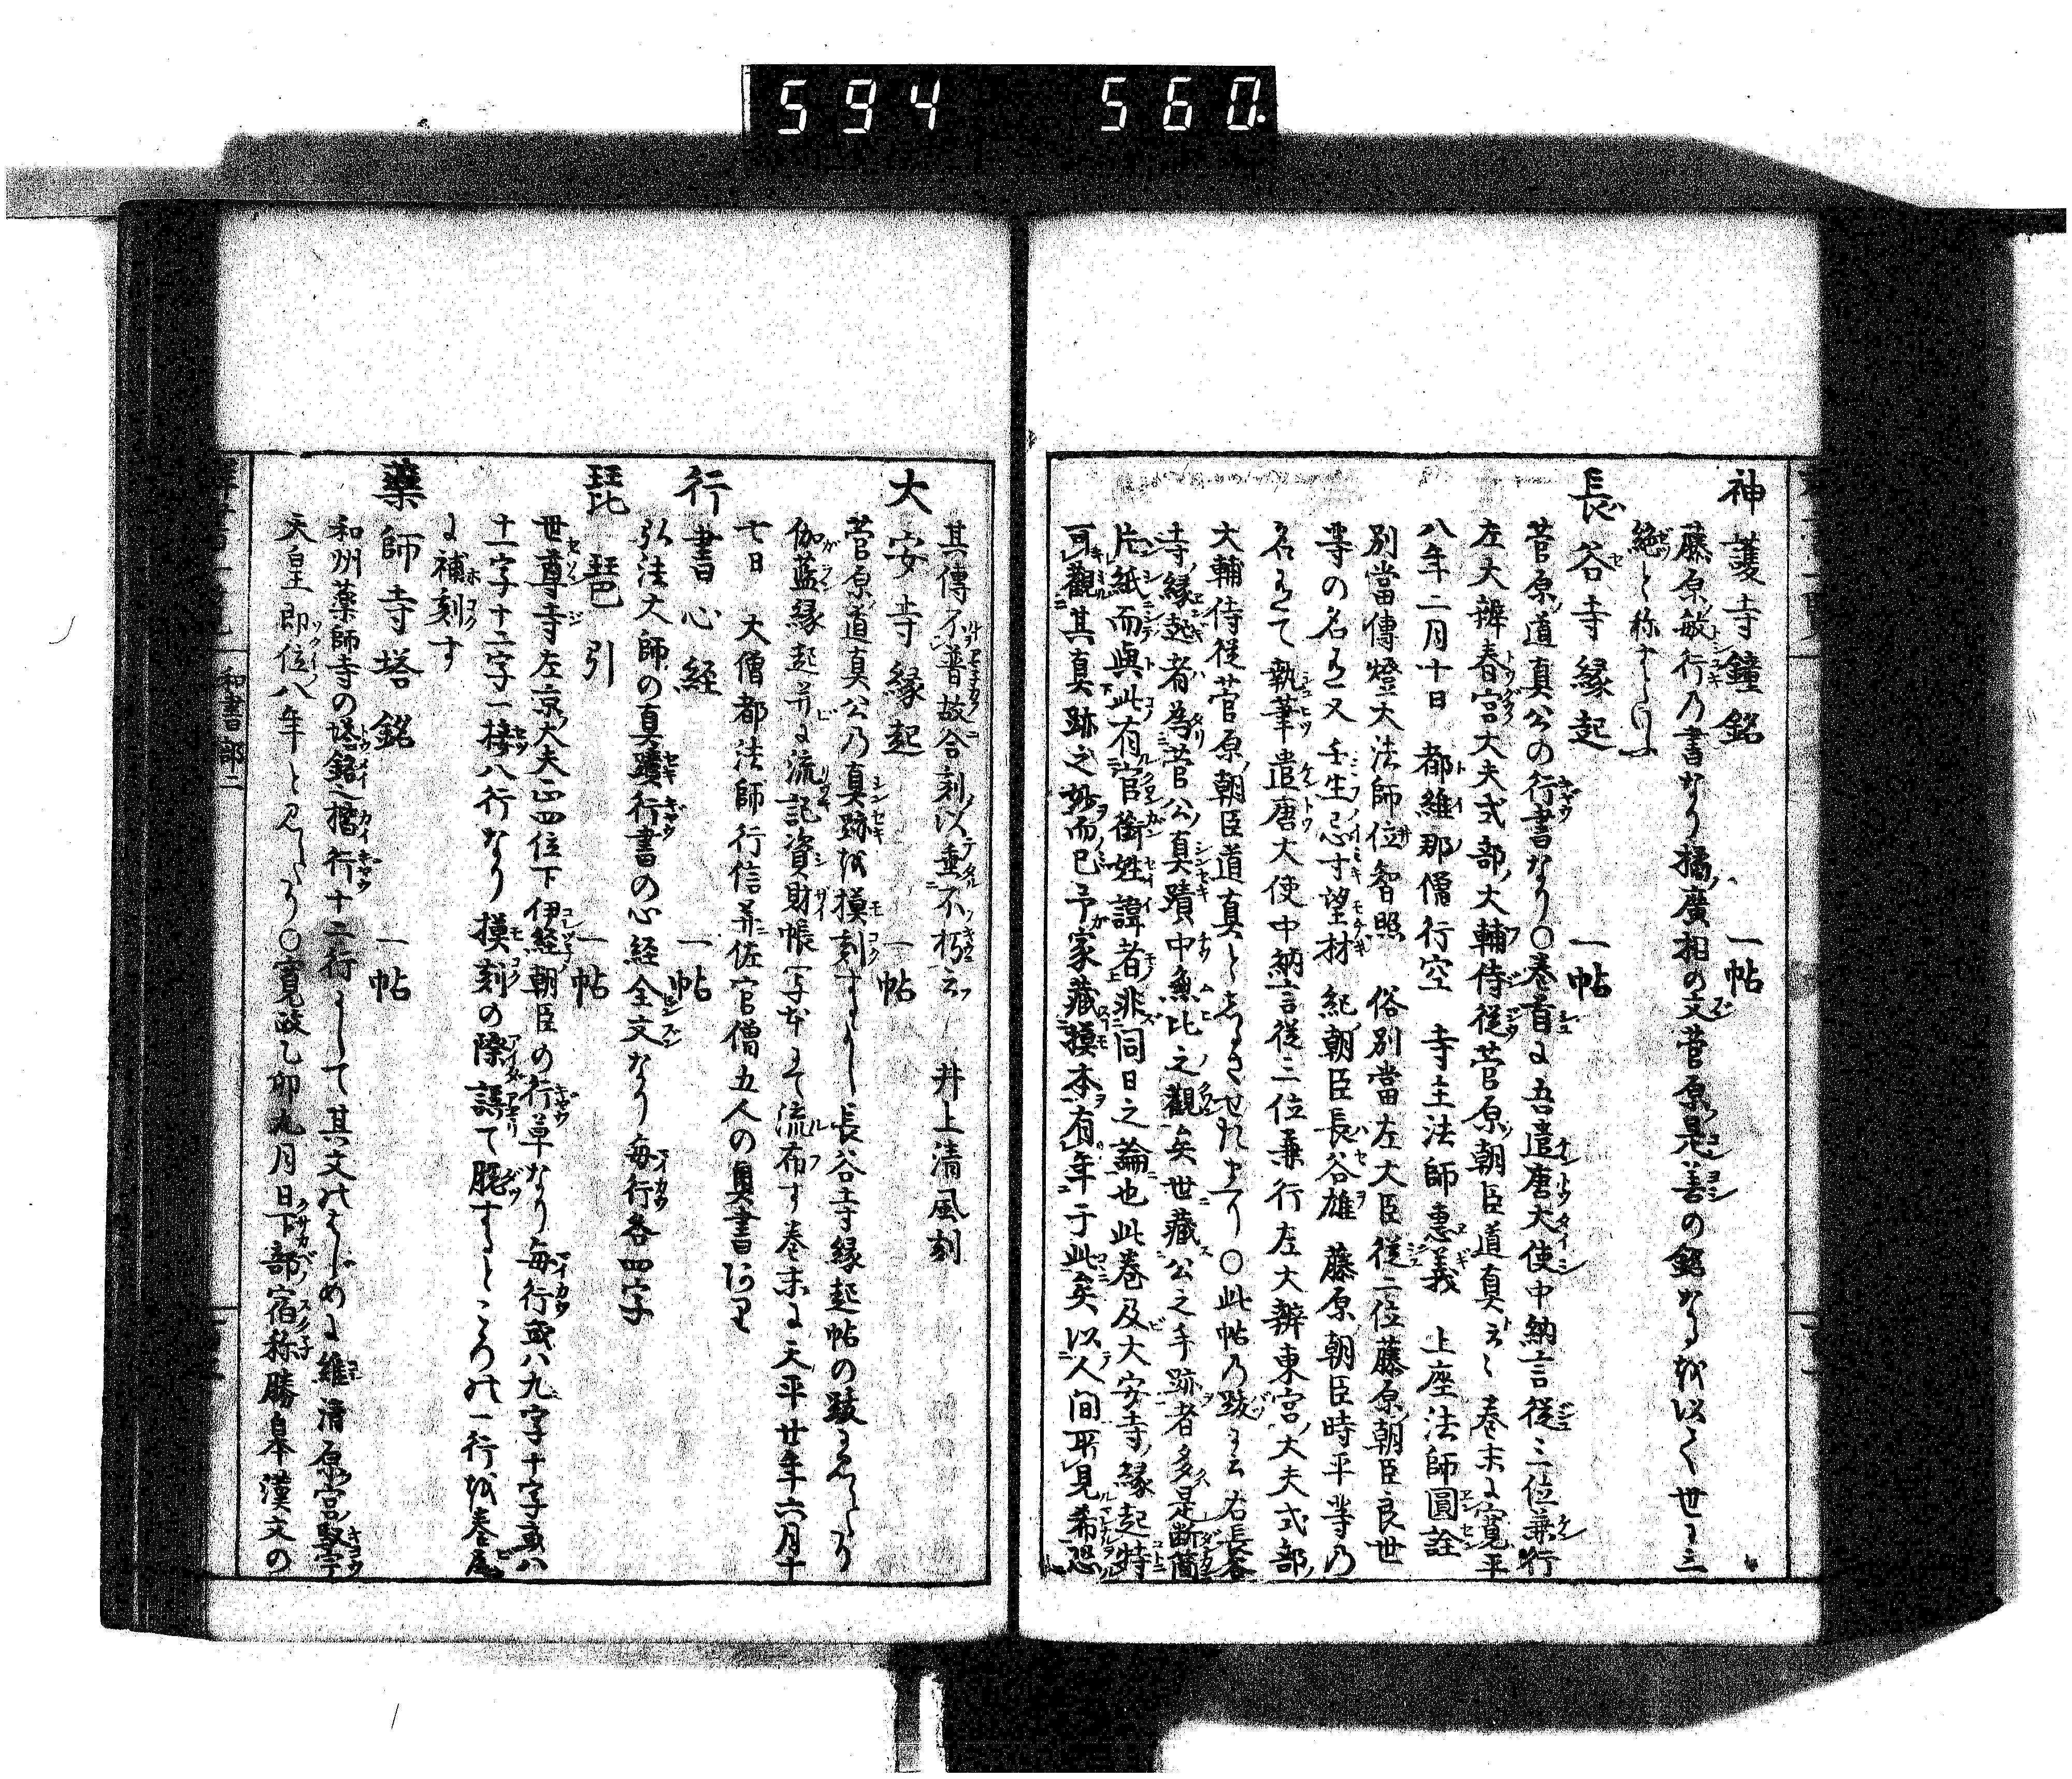 594 560.
神護寺鐘銘 一帖
藤原敏行の書なり橘廣相の文菅原是善の銘なるを以て世に三
絶と称す
長谷寺縁起 一帖
菅原道真公の行書なり○巻首に吾遣唐大使中納言従三位兼行
左大辨春宮大夫式部大輔侍従菅原朝臣道真云々巻末に寛平
八年二月十日 都維那僧行空 寺主法師惠義 上座法師圓詮
別當傳燈大法師位智照 俗別當左大臣従二位藤原朝臣良世
等の名有又壬生忌寸望材 紀朝臣長谷雄 藤原朝臣時平等乃
名有て執筆遣唐大使中納言従二位兼行左大辨東宮大夫式部
大輔侍従菅原朝臣道真としるさせり○此帖乃跋に云右長谷
寺縁起者為菅公真蹟中無比之觀矣世藏公之手跡者多是断簡
片紙而與此有官銜姓諱者非同日之論也此巻及大安寺縁起特
可觀其真跡之妙而已予家藏摸本有年于此矣以人間所見希恐
其傳不普故合刻以垂不朽云 井上清風刻
大安寺縁起 一帖
菅原道真公乃真跡を摸刻すよし長谷寺縁起帖の跋に見へたり
伽藍縁起并に流記資財帳写本にて流布す巻末に天平廿年六月十
七日 大僧都法師行信并佐官僧五人の奥書あり
行書心経 一帖
弘法大師の真蹟行書の心経全文なり毎行各四字
琵琶引 一帖
世尊寺左京大夫正四位下伊経朝臣の行草なり毎行或八九字十字或ハ
十一字十二字一接八行なり摸刻の際誤て脱するところの一行を巻尾
に補刻す
藥師寺塔銘 一帖
和州薬師寺の塔銘之楷行十二行にして其文のはじめに維清原宮馭宇
天皇即位八年と見へたり○寛政乙卯九月日下部宿祢勝皐本漢文の
和書部二